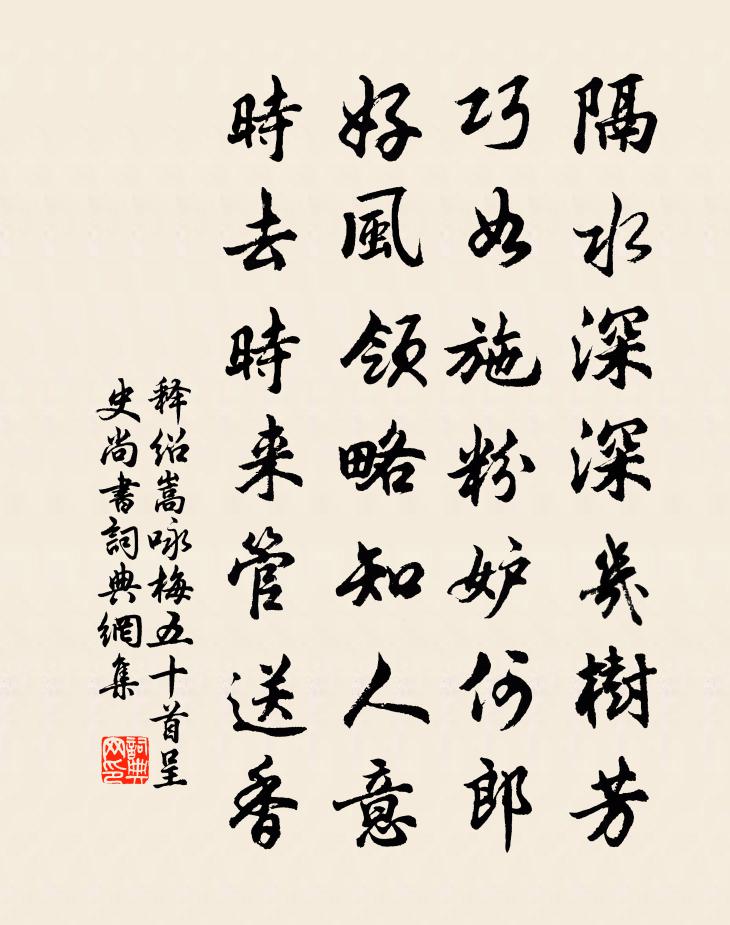 隔水深深幾樹芳
巧如施粉妒何郎
好風領略知人意
時去時来管送香
释绍嵩咏梅五十首呈
史尚書詞典網集
詞典
网印